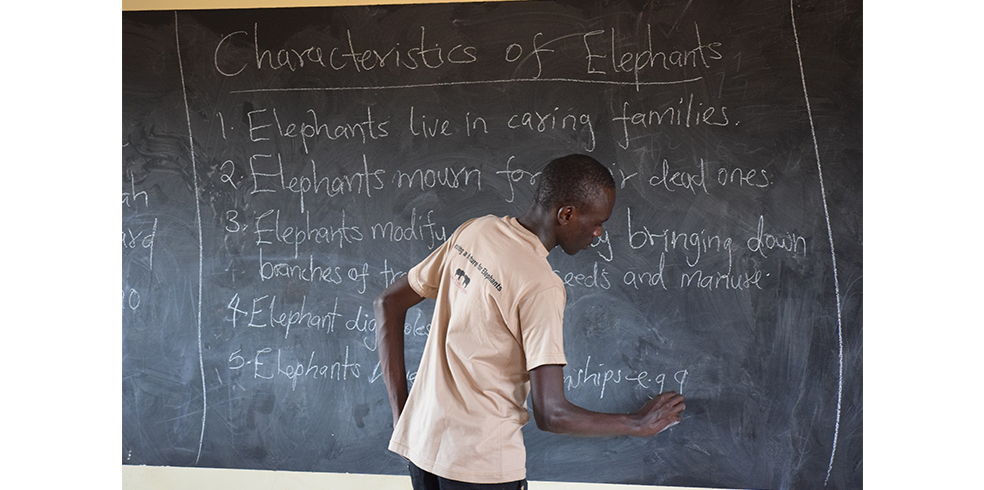 Characteristics of Elephants
1. Elephants live in caring families.
2. Elephants mourn for dead ones.
3. Elephants modify by bringing down
branches of seeds and manure.
4 Elephant dig
5. Elephants e.g a
to Elephants